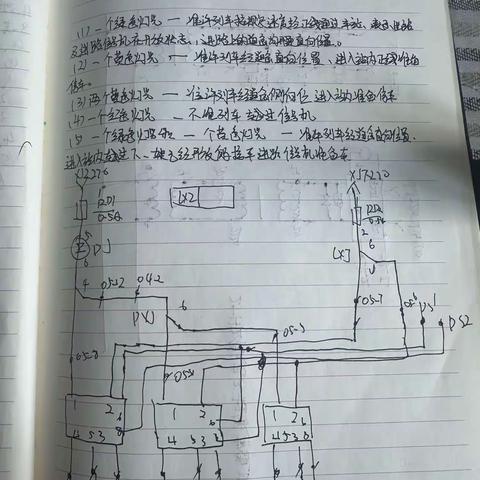 (1) 一个绿色灯光 — 准许列车按规定速度经正线通过车站，表示出站
及进路信号机在开放状态，进路上的道岔均开通直向位置。
(2) 一个黄色灯光 — 准许列车经道岔直向位置，进入站内正线准备
停车。
(3) 两个黄色灯光 — 准许列车经道岔侧向位 进入站内准备停车
(4) 一个红色灯光 — 不准列车越过信机
(5) 一个绿色灯光和 一个黄色灯光 — 准许列车经道岔直向位置,
进入站内越过下一架已经开放的接车进路信机准备车
XJZ220
XJF220
RD1
0.5A
LX2
DJ
5
6
2
6
LXJ
4
05-12
04-2
6
05-7
DXJ
05-8
05-3
DS1
DS2
1 2
6
8
4 5 3
1 2
6
4 5 3 8
1 2 6
4 5 3 8